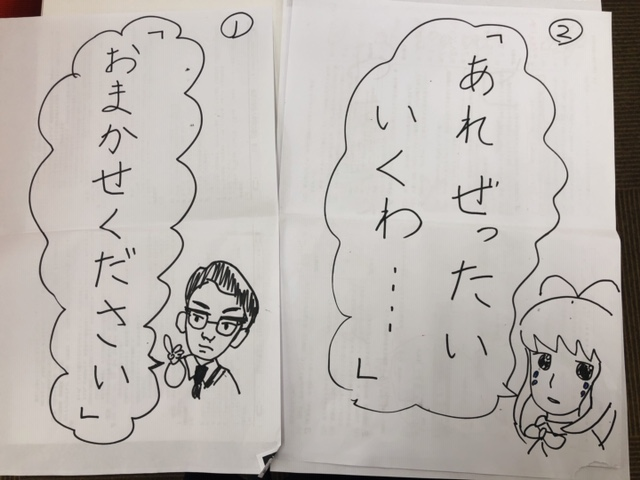 ①
「おまかせください」
②
「あれ ぜったい
いくわ……」